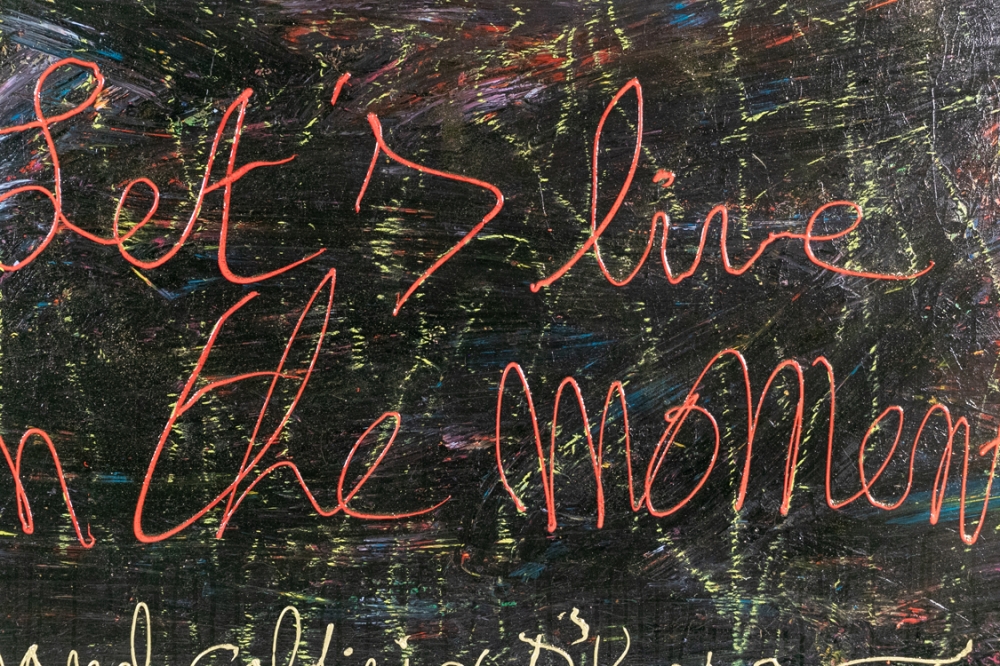 Let's live
in the moment
and